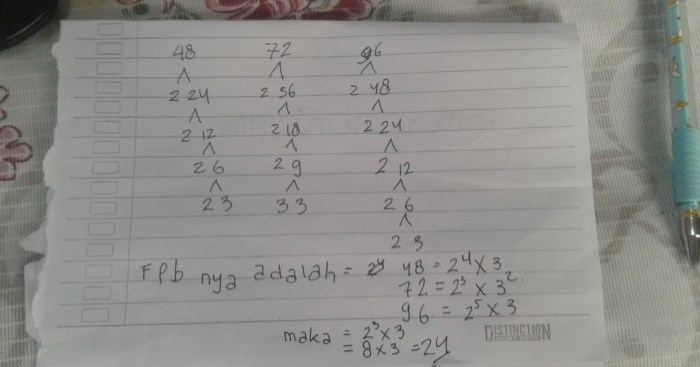 48 72 96
2 24 2 36 2 48
2 12 2 18 2 24
2 6 2 9 2 12
2 3 3 3 2 6
2 3
FPb nya adalah = 48 = 2⁴ x 3
72 = 2³ x 3²
96 = 2⁵ x 3
maka = 2³ x 3
= 8 x 3 = 24
DISTINCTION